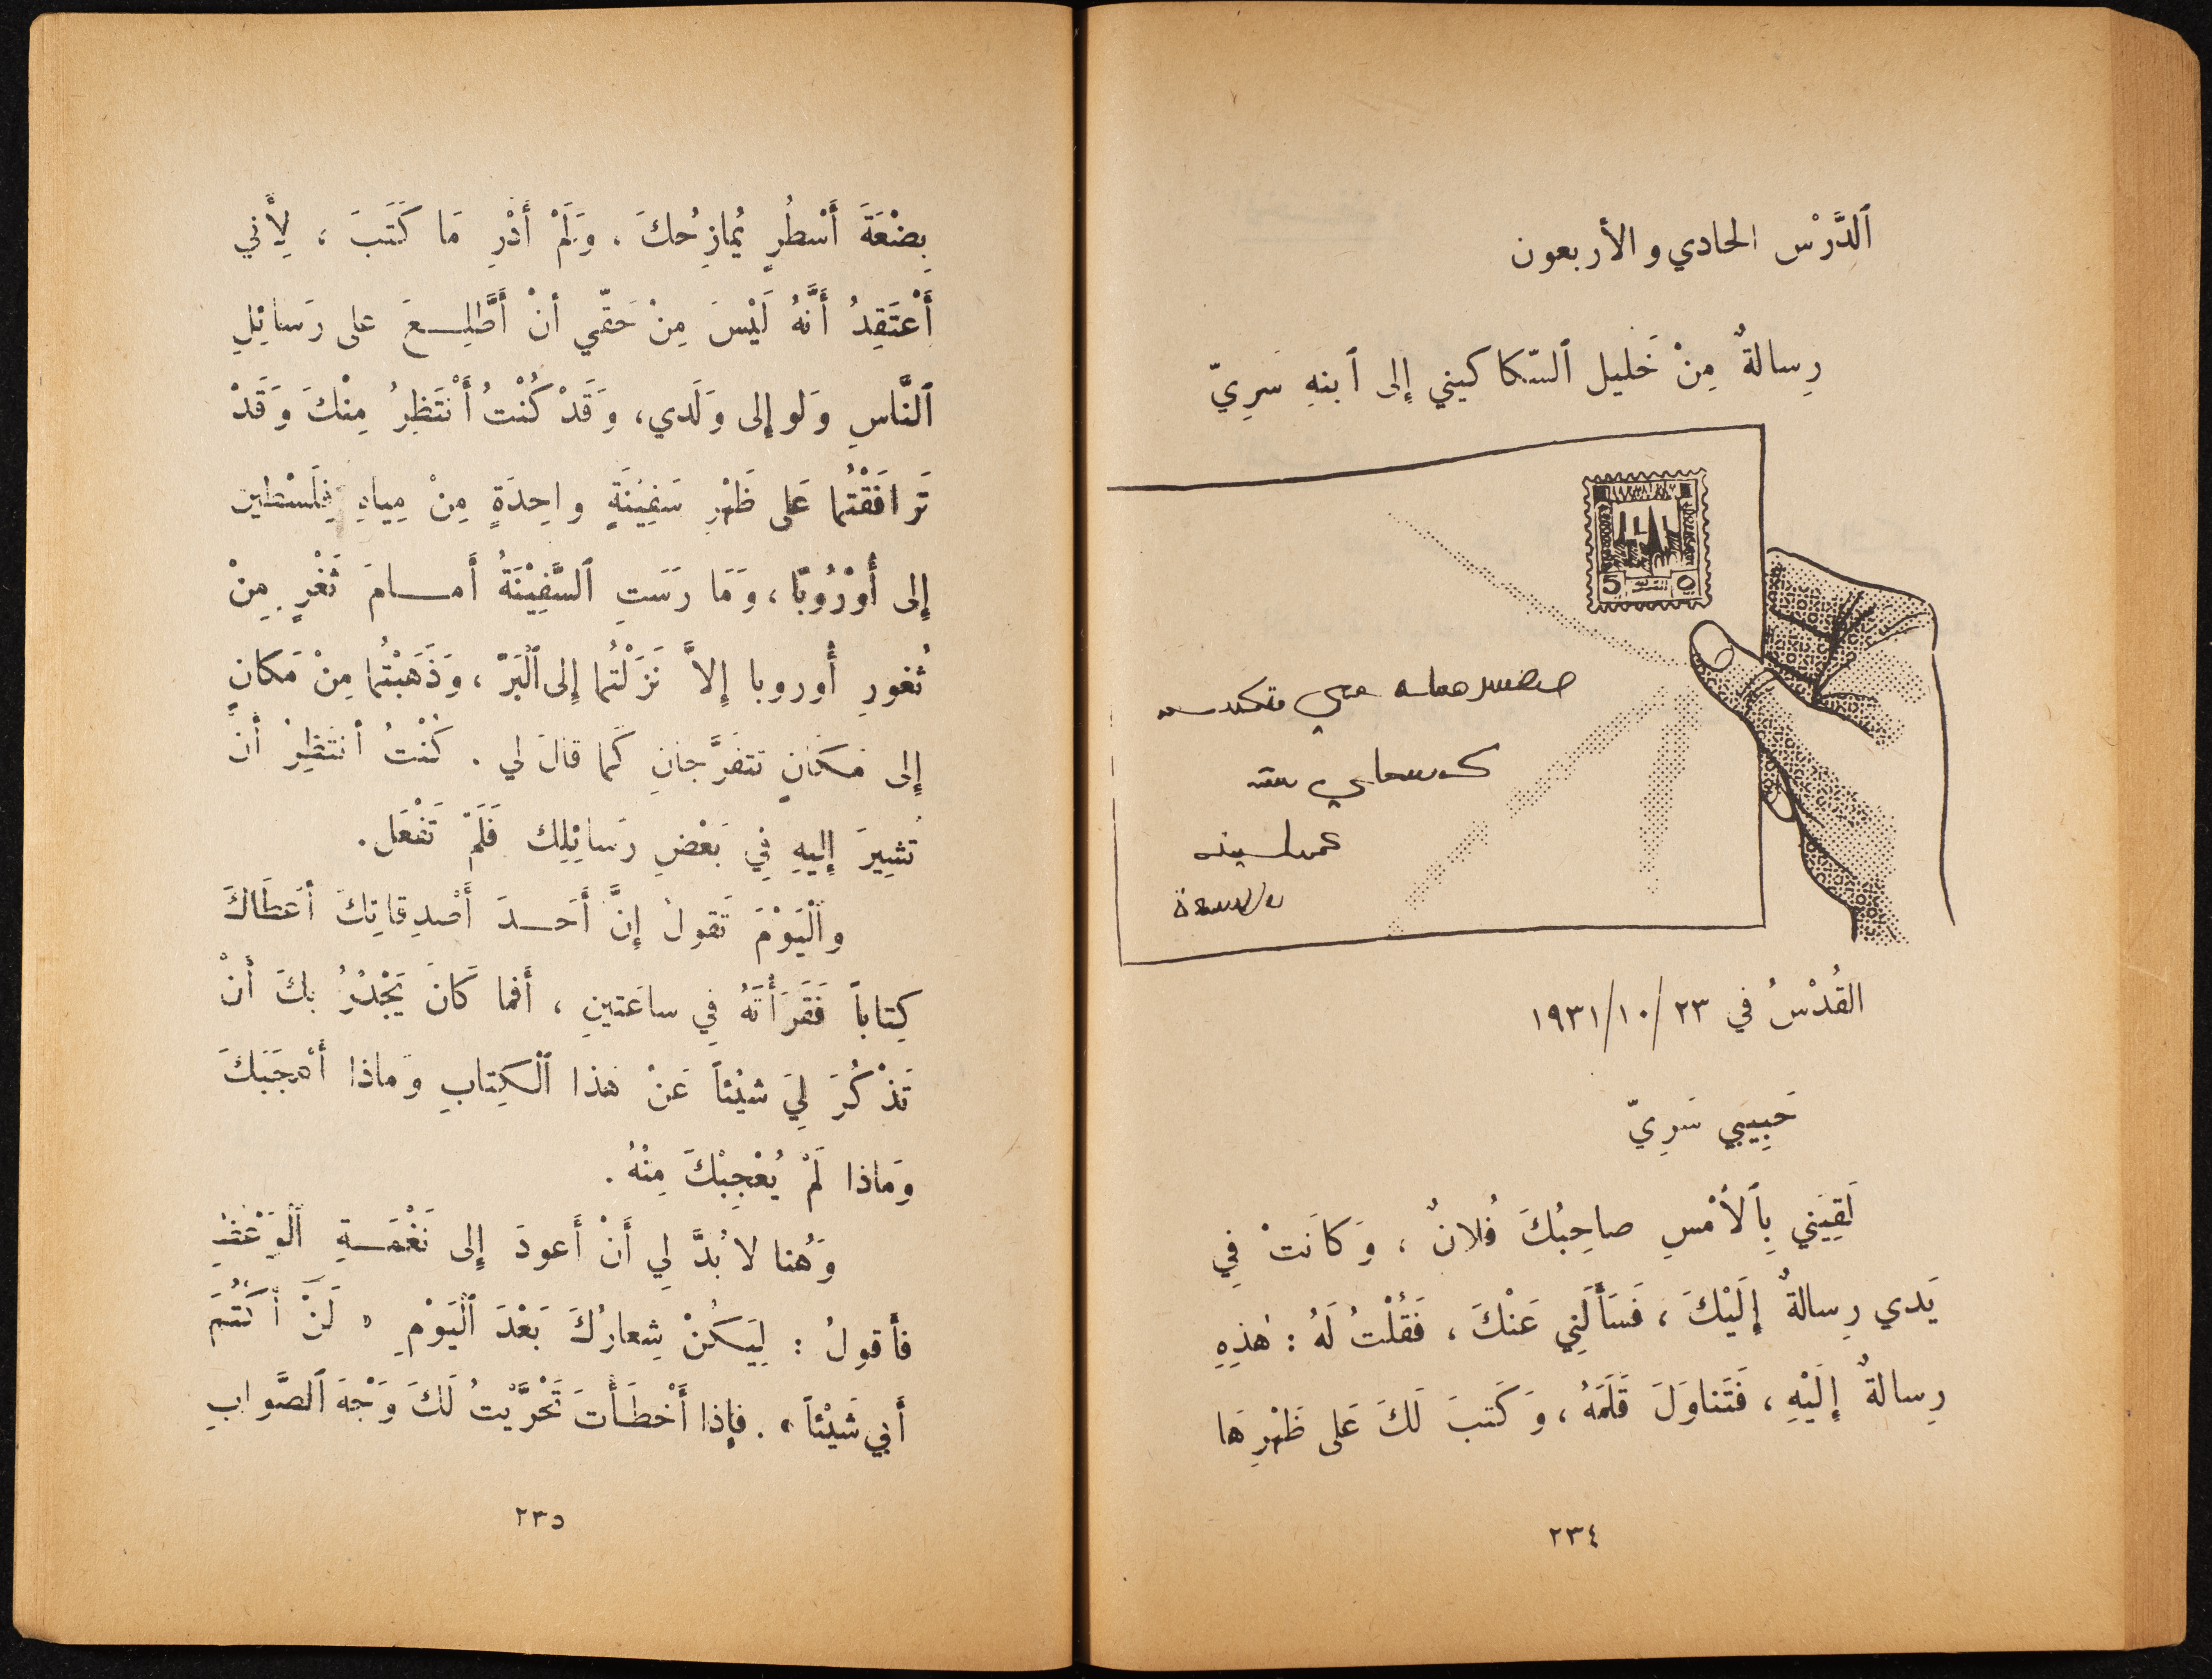 ٱلدَّرْس الحادي والأربعون
رِسالةٌ مِنْ خَليل ٱلسّكاكيني إلى ٱبنهِ سَرِيّ
5 ٥
القُدْسُ في ٢٣/١٠/١٩٣١
حَبِيبي سَرِيّ
لَقِيَني بِٱلأَمْسِ صاحِبُكَ فُلانٌ ، وَكانَتْ فِي
يَدي رِسالةٌ إِلَيْكَ ، فَسَأَلَنِي عَنْكَ ، فَقُلْتُ لَهُ : هٰذِهِ
رِسالةٌ إِلَيْهِ ، فَتَناوَلَ قَلَمَهُ ، وَكَتبَ لَكَ عَلى ظَهْرِهَا
٢٣٤
بِضْعَةَ أَسْطُرٍ يُمازِحُكَ ، وَلَمْ أَدْرِ مَا كَتَبَ ، لِأَني
أَعْتَقِدُ أَنَّهُ لَيْسَ مِنْ حَقّي أنْ أَطَّلِـعَ على رَسائِلِ
ٱلنَّاسِ وَلو إلى وَلَدي، وَقَدْ كُنْتُ أَنْتَظِرُ مِنْكَ وَقَدْ
تَرافَقْتُما عَلى ظَهْرِ سَفِيْنَةٍ واحِدَةٍ مِنْ مِياهِ فِلَسْطين
إلى أُوْرُوبّا ، وَمَا رَسَتِ ٱلسَّفِيْنَةُ أَمـامَ ثَغْرٍ مِنْ
ثُغورِ أُوروبا إلاَّ نَزَلْتُما إلى ٱلْبَرّ ، وَذَهَبْتُما مِنْ مَكانٍ
إلى مَكانٍ تتفَرَّجانِ كَما قالَ لي . كُنْتُ أنتَظِرُ أنْ
تُشِيرَ إليهِ فِي بَعْضِ رَسائِلِك فَلَمْ تَفْعَل .
وٱلْيَوْمَ تَقولُ إنَّ أَحَـدَ أَصْدِقائِكَ أَعطَاكَ
كِتاباً فَقَرَأْتَهُ في ساعَتينِ ، أَفما كَانَ يَجْدُرُ بكَ أنْ
تَذْكُرَ لِيَ شيْئاً عَنْ هَذا ٱلْكِتابِ وَماذا أَعْجَبَكَ
وَماذا لَمْ يُعْجِبْكَ مِنْهُ .
وَهُنا لا بُدَّ لي أَنْ أَعودَ إلى نَغْمَـةِ ٱلْوَعْظِ
فأقولُ : لِيَكُنْ شِعارُكَ بَعْدَ ٱلْيَوْمِ « لَنْ أَكتُمَ
أَبي شَيْئاً » . فإذا أَخْطَأْتَ تَحَرَّيْتُ لَكَ وَجْهَ ٱلصَّوابِ
٢٣٥